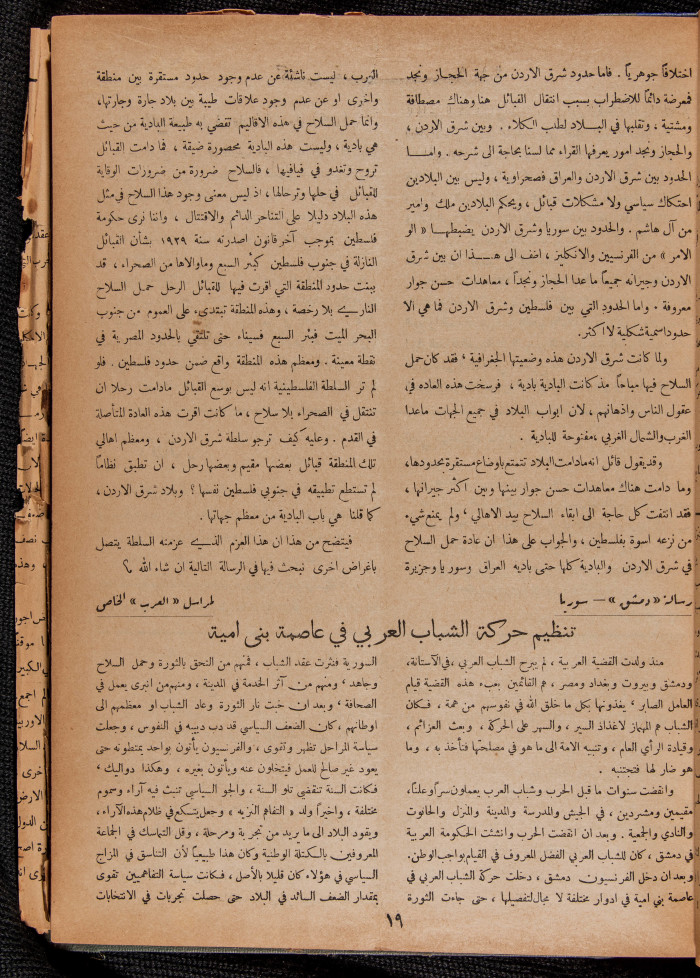 اختلافاً جوهرياً . فاما حدود شرق الاردن من جهة الحجاز ونجد
فمعرضة دائماً للاضطراب بسبب انتقال القبائل هنا وهناك مصطافة
ومشتية ، وتقلبها في البلاد لطلب الكلاء . وبين شرق الاردن ،
والحجاز ونجد امور يعرفها القراء مما لسنا بحاجة الى شرحه . وامـا
الحدود بين شرق الاردن والعراق فصحراوية ، وليس بين البلادين
احتكاك سياسي ولا مشكلات قبائل ، ويحكم البلادين ملك وامير
من آل هاشم . والحدود بين سوريا وشرق الاردن يضبطها « الو
الامر » من الفرنسيين والانكليز ، اضف الى هــذا ان بين شرق
الاردن وجيرانه جميعاً ما عدا الحجاز ونجداً ، معاهدات حسن جوار
معروفة . واما الحدود التي بين فلسطين وشرق الاردن فما هي الا
حدود اسمية شكلية لا اكثر.
ولما كانت شرق الاردن هذه وضعيتها الجغرافية ، فقد كان حمل
السلاح فيها مباحاً مذ كانت البادية بادية ، فرسخت هذه العاده في
عقول الناس واذهانهم ، لان ابواب البلاد في جميع الجهات ماعدا
الغرب والشمال الغربي ، مفتوحة للبادية .
وقد يقول قائل انه مادامت البلاد تتمتع باوضاع مستقرة بحدودها،
وما دامت هناك معاهدات حسن جوار بينها وبين اكثر جيرانها ،
فقد انتفت كل حاجة الى ابقاء السلاح بيد الاهالي ، ولم يمنع شيء
من نزعه اسوة بفلسطين ، والجواب على هذا ان عادة حمل السلاح
في شرق الاردن والبادية كلها حتى باديه العراق وسوريا وجزيرة
العرب ، ليست ناشئة عن عدم وجود حدود مستقرة بين منطقة
واخرى او عن عدم وجود علاقات طيبة بين بلاد جارة وجارتها،
وانما حمل السلاح في هذه الاقاليم تقضي به طبيعة البادية من حيث
هي بادية ، وليست هذه البادية محصورة ضيقة ، فما دامت القبائل
تروح وتغدو في فيافيها ، فالسلاح ضرورة من ضرورات الوقاية
للقبائل في حلها وترحالها ، اذ ليس معنى وجود هذا السلاح في مثل
هذه البلاد دليلا على التناحر الدائم والاقتتال ، واننا نرى حكومة
فلسطين بموجب آخر قانون اصدرته سنة ١٩٢٩ بشأن القبائل
النازلة في جنوب فلسطين كبئر السبع وماوالاها من الصحراء ، قد
بينت حدود المنطقة التي اقرت فيها للقبائل الرحل حمل السلاح
الناري بلا رخصة ، وهذه المنطقة تبتدىء على العموم من جنوب
البحر الميت فبئر السبع فسيناء حتى تلتقي بالحدود المصرية في
نقطة معينة . ومعظم هذه المنطقة واقع ضمن حدود فلسطين . فلو
لم تر السلطة الفلسطينية انه ليس بوسع القبائل مادامت رحلا ان
تنتقل في الصحراء بلا سلاح ، ما كانت اقرت هذه العادة المتأصلة
في القدم . وعليه كيف ترجو سلطة شرق الاردن ، ومعظم اهالي
تلك المنطقة قبائل بعضها مقيم وبعضها رحل ، ان تطبق نظاماً
لم تستطع تطبيقه في جنوبي فلسطين نفسها ؟ وبلاد شرق الاردن ،
كما قلنا هي باب البادية من معظم جهاتها .
فيتضح من هذا ان هذا العزم الذي عزمته السلطة يتصل
باغراض اخرى نبحث فيها في الرسالة التالية ان شاء الله
رسالة « دمشق » — سوريا
لمراسل « العرب » الخاص
تنظيم حركة الشباب العربي في عاصمة بني امية
منذ ولدت القضية العربية ، لم يبرح الشباب العربي ، في الآستانة،
ودمشق وبيروت وبغداد ومصر ، هم القائمين بعبء هذه القضية قيام
العامل الصابر ، يغذونها بكل ما خلق الله في نفوسهم من همة ، فكان
الشباب هم المهماز لاغذاذ السير ، والسهر على الحركة ، وبعث العزائم ،
وقيادة الرأي العام ، وتنبيه الامة الى ما هو في مصلحتها فتأخذ به ، وما
هو ضار لها فتجتنبه .
وانقضت سنوات ما قبل الحرب وشباب العرب يعملون سراً وعلناً،
مقيمين ومشردين ، في الجيش والمدرسة والمدينة والمنزل والحانوت
والنادي والجمعية . وبعد ان انقضت الحرب وانشئت الحكومة العربية
في دمشق ، كان للشباب العربي الفضل المعروف في القيام بواجب الوطن.
وبعد ان دخل الفرنسيون دمشق ، دخلت حركة الشباب العربي في
عاصمة بني امية في ادوار مختلفة لا مجال لتفصيلها ، حتى جاءت الثورة
السورية فنثرت عقد الشباب ، فمنهم من التحق بالثورة وحمل السلاح
وجاهد ، ومنهم من آثر الخدمة في المدينة ، ومنهم من انبرى يعمل في
الصحافة ، وبعد ان خبت نار الثورة وعاد الشباب او معظمهم الى
اوطانهم ، كان الضعف السياسي قد دب دبيبه في النفوس ، وجعلت
سياسة المراحل تظهر وتقوى ، والفرنسيون يأتون بواحد يمتطونه حتى
يعود غير صالح للعمل فيتخلون عنه ويأتون بغيره ، وهكذا دواليك ،
فكانت السنة تنقضي تلو السنة ، والجو السياسي تنبث فيه آراء وسموم
مختلفة ، واخيراً ولد « التفاهم النزيه » وجعل يتسكع في ظلام هذه الآراء ،
ويقود البلاد الى ما يريد من تجربة ومرحلة ، وقل التماسك في الجماعة
المعروفين بالكتلة الوطنية وكان هذا طبيعياً لأن التناسق في المزاج
السياسي في هؤلاء كان قليلا بالأصل ، فكانت سياسة التفاهميين تقوى
بمقدار الضعف السائد في البلاد حتى حصلت تجربات في الانتخابات
١٩